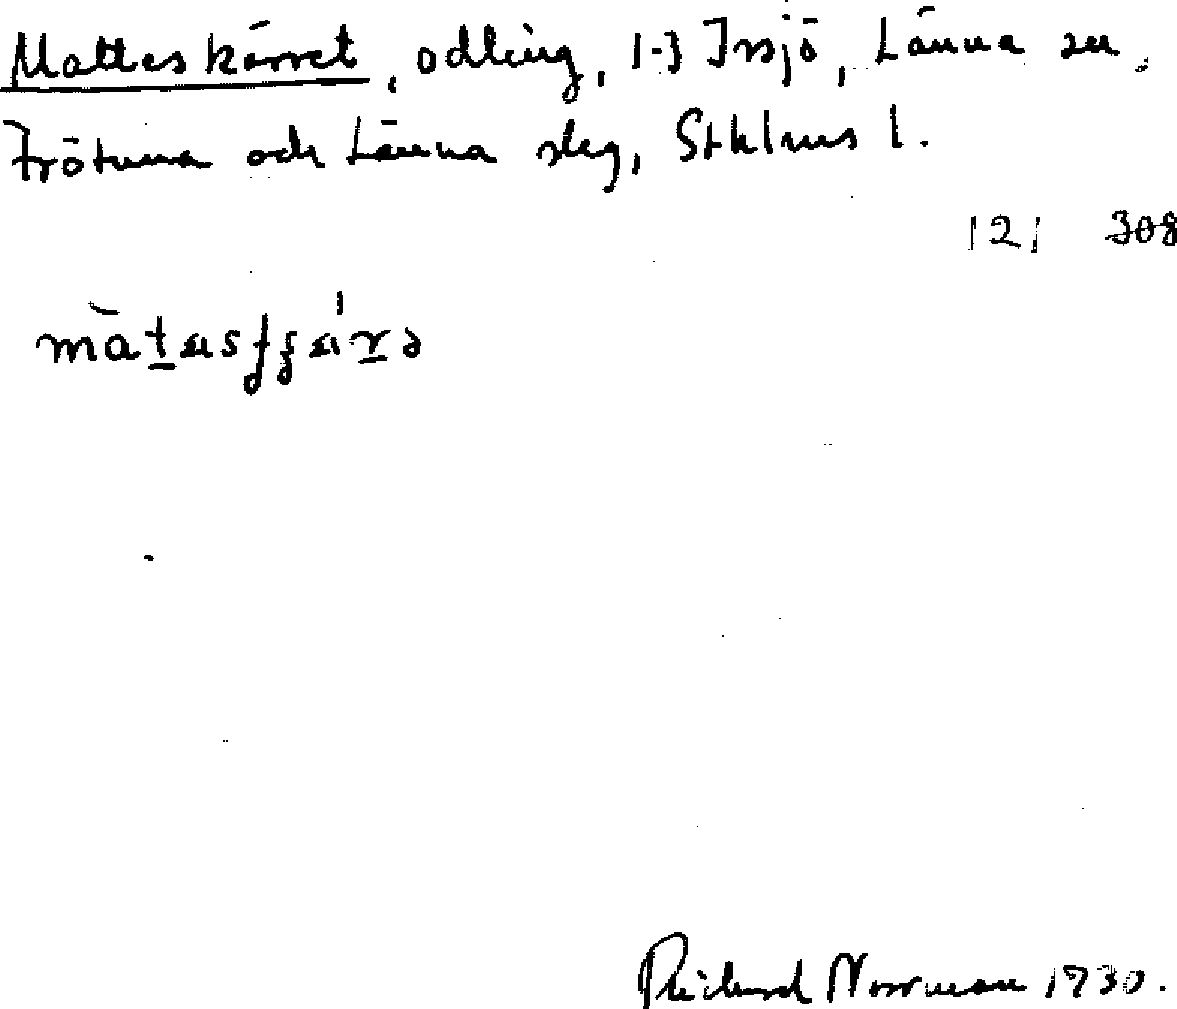 Matteskärret, odling, 1-3 Issjö, Länna sn,
Frötuna och Länna slg, Sthlms l.
121 308
Rickard Norrman 1930.